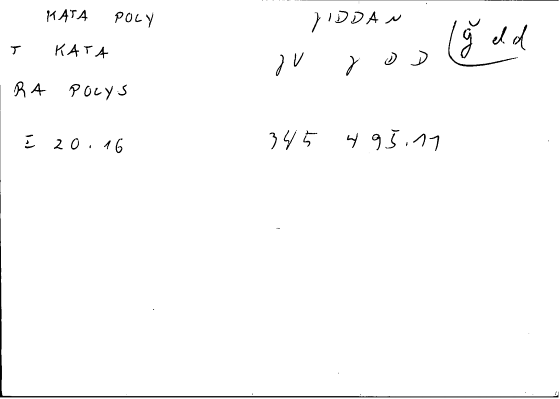 KATA POLY
T KATA
RA POLYS
I 20.16
ɣIDDAN
ɣV ɣ D D
ğ dd
345 495.11